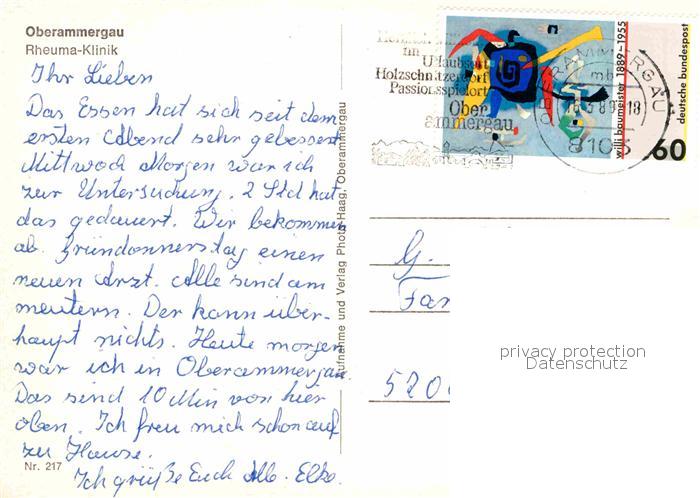 Oberammergau
Rheuma-Klinik
Ihr Lieben
Das Essen hat sich seit dem
ersten Abend sehr gebessert
Mittwoch Morgen war ich
zur Untersuchung. 2 Std hat
das gedauert. Wir bekommen
ab. Gründonnerstag einen
neuen Arzt. Alle sind am
meutern. Der kann über-
haupt nichts. Heute morgen
war ich in Oberammergau.
Das sind 10 Min von hier
oben. Ich freu mich schon auf
zu Hause.
Ich grüße Euch Alle. Elke.
Nr. 217
Aufnahme und Verlag Photo-Haag, Oberammergau
im
Urlaubsort
Holzschnitzerdorf
Passionsspielort
Ober
ammergau
OBERAMMERGAU
mb
18
8103
willi baumeister 1889-1955
deutsche bundespost
60
G.
Fam
520
privacy protection
Datenschutz